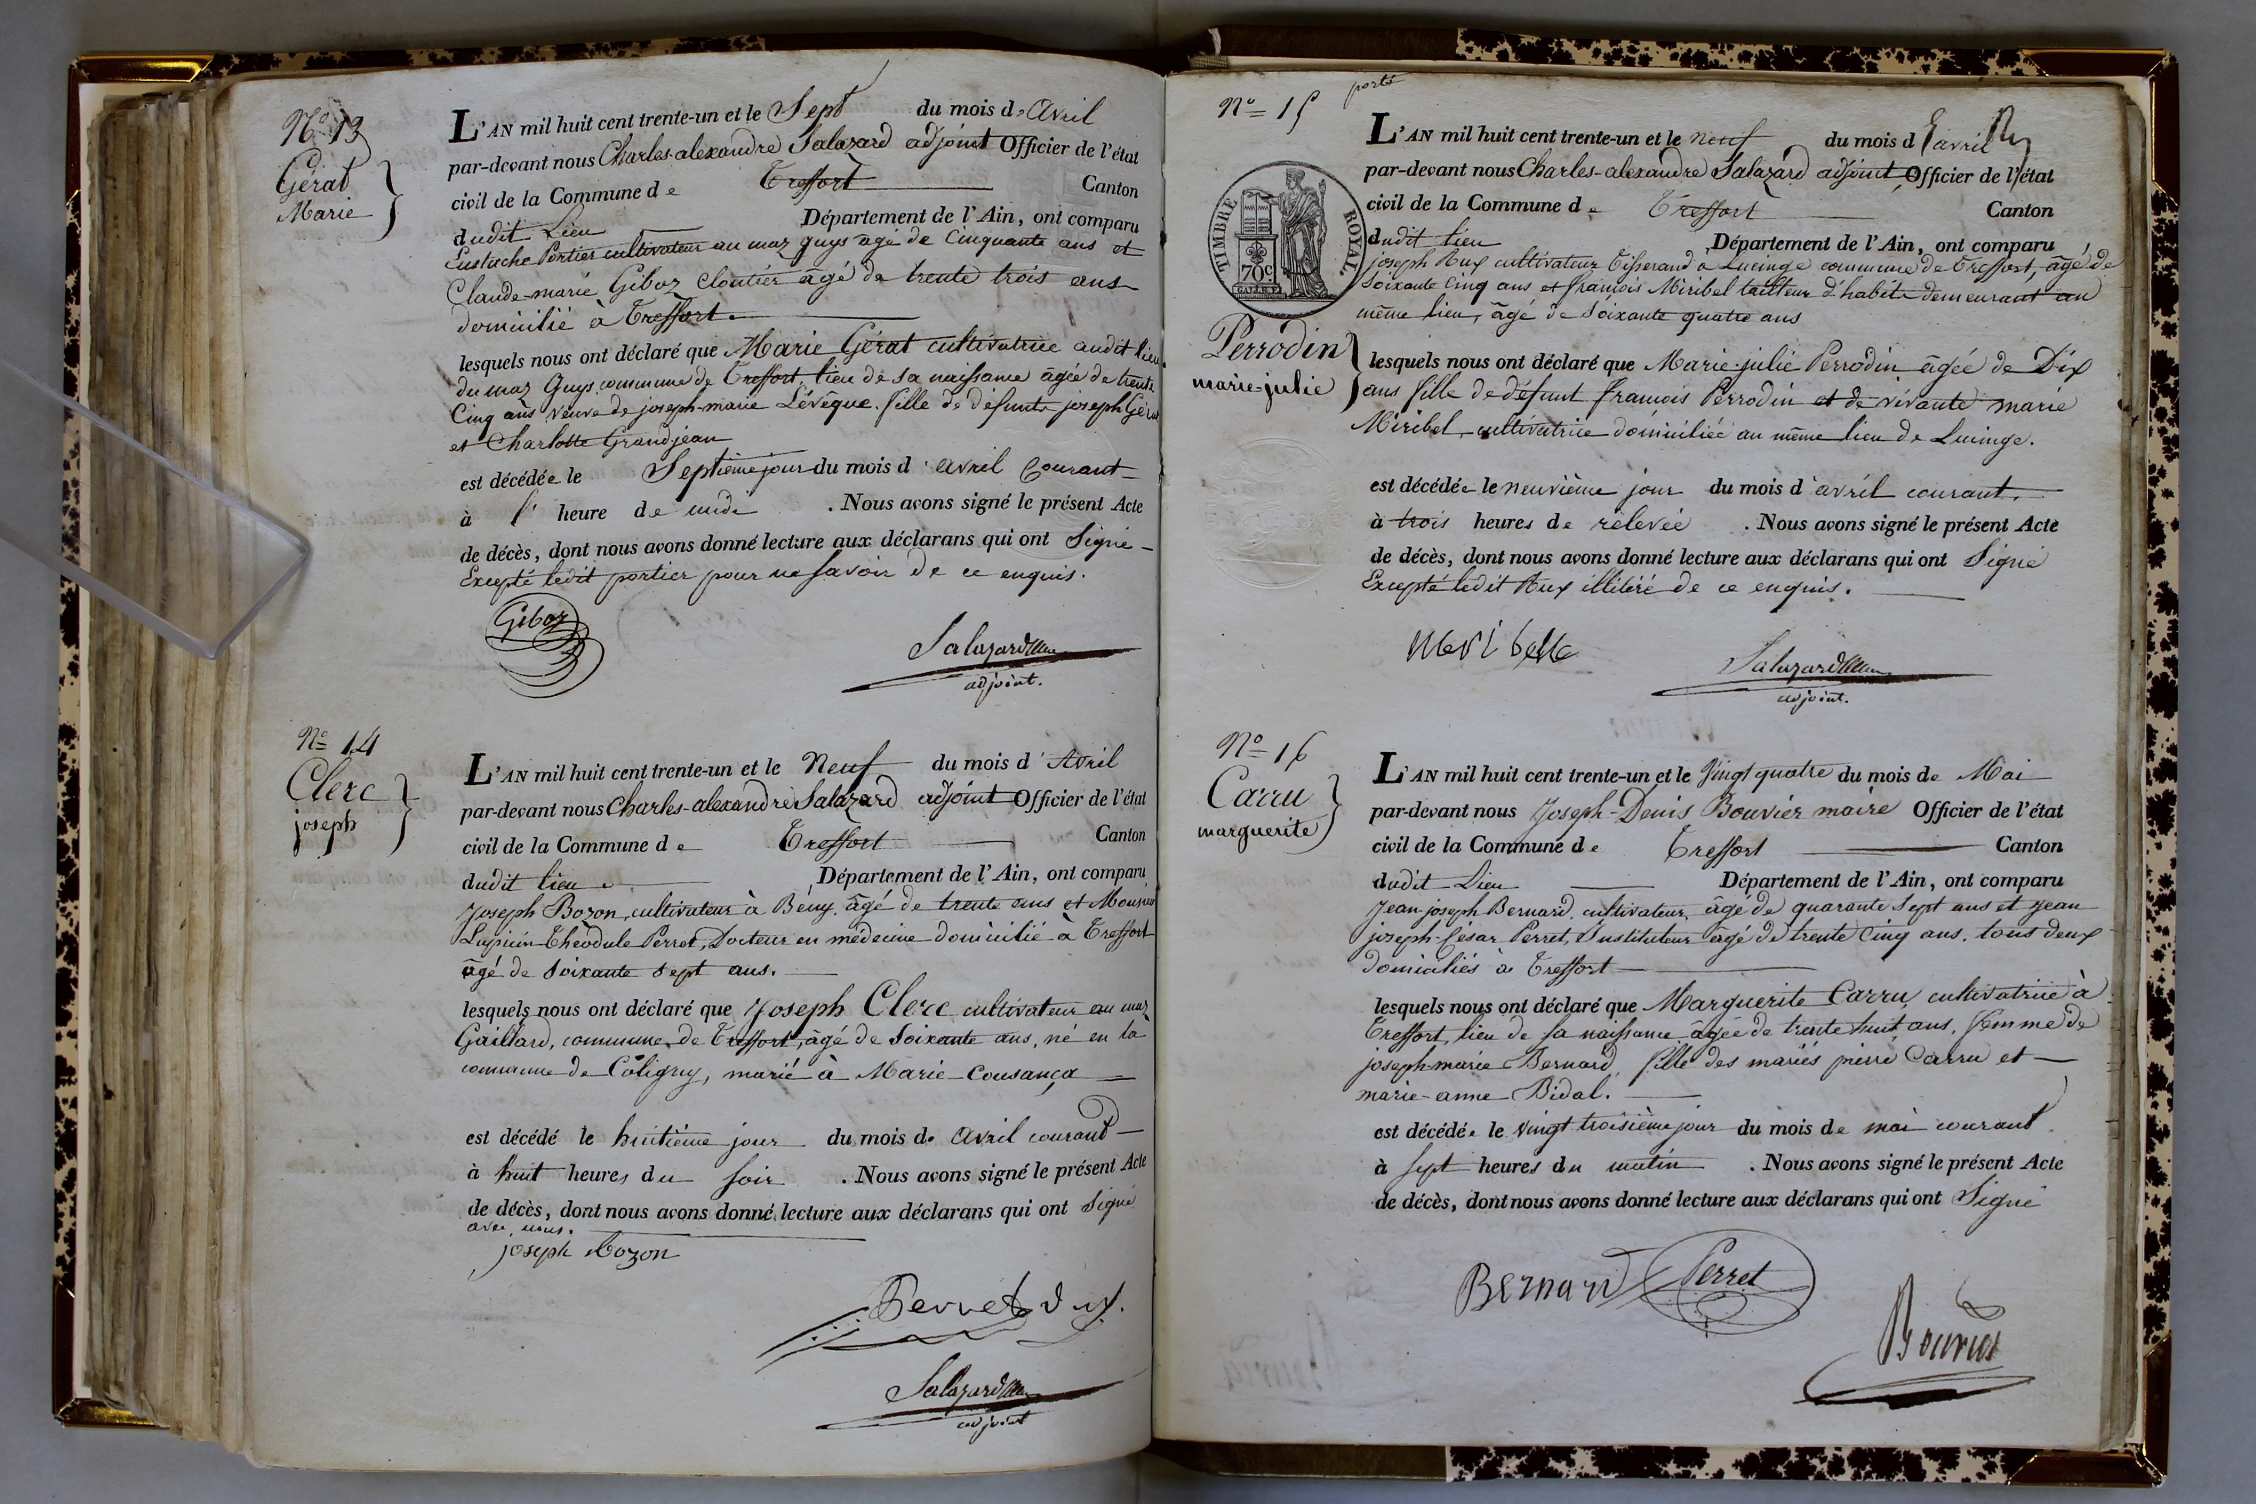 N° 13
Gérat
Marie
L'AN mil huit cent trente-un et le Sept du mois d'Avril
par-devant nous Charles-alexandre Salazard adjoint Officier de l'état
civil de la Commune de Treffort Canton
dudit Lieu Département de l'Ain, ont comparu
Eustache Portier cultivateur au maz guys âgé de Cinquante ans et
Claude-marie Giboz Cloutier âgé de trente trois ans
domicilié à Treffort.
lesquels nous ont déclaré que Marie Gérat cultivatrice audit lieu
du maz Guys commune de Treffort, lieu de sa naissance âgée de trente
Cinq ans veuve de joseph-marie Lévêque. fille de defunts joseph Gérat
et Charlotte Grandjean
est décédée le Septième jour du mois d'avril Courant
à l' heure de midi . Nous avons signé le présent Acte
de décès, dont nous avons donné lecture aux déclarans qui ont Signé
Excepté ledit portier pour ne savoir de ce enquis.
Giboz
Salazard
adjoint.
N° 14
Clerc
joseph
L'AN mil huit cent trente-un et le Neuf du mois d'Avril
par-devant nous Charles-alexandre Salazard adjoint Officier de l'état
civil de la Commune de Treffort Canton
dudit lieu Département de l'Ain, ont comparu
Joseph Bozon, cultivateur à Bény, âgé de trente ans et Monsieur
Lupicin Théodule Perret, Docteur en médecine domicilié à Treffort
âgé de soixante sept ans.
lesquels nous ont déclaré que Joseph Clerc cultivateur au maz
Gaillard, commune de Treffort, âgé de soixante ans, né en la
commune de Coligny, marié à Marie Cousança
est décédé le huitième jour du mois de Avril courant
à huit heures du soir . Nous avons signé le présent Acte
de décès, dont nous avons donné lecture aux déclarans qui ont signé
avec nous.
joseph Bozon
Perret
Salazard
adjoint
N° 15
porté
TIMBRE ROYAL
70c
Perrodin
marie-julie
L'AN mil huit cent trente-un et le neuf du mois d'avril
par-devant nous Charles-alexandre Salazard adjoint Officier de l'état
civil de la Commune de Treffort Canton
dudit lieu Département de l'Ain, ont comparu
joseph Rux cultivateur Tisserand a Lucinge commune de Treffort, âgé de
soixante Cinq ans et françois Miribel tailleur d'habits demeurant au
même lieu, âgé de soixante quatre ans
lesquels nous ont déclaré que Marie-julie Perrodin âgée de Dix
ans fille de défunt françois Perrodin et de vivante marie
Miribel, cultivatrice domiciliée au même lieu de Lucinge.
est décédée le neuvième jour du mois d'avril courant.
à trois heures de relevée . Nous avons signé le présent Acte
de décès, dont nous avons donné lecture aux déclarans qui ont Signé
Excepté ledit Rux illitéré de ce enquis.
Salazard
adjoint.
N° 16
Carru
marguerite
L'AN mil huit cent trente-un et le Vingt quatre du mois de Mai
par-devant nous Joseph-Denis Bouvier maire Officier de l'état
civil de la Commune de Treffort Canton
dudit Lieu Département de l'Ain, ont comparu
Jean joseph Bernard, cultivateur, âgé de quarante sept ans et Jean
joseph-César Perret, Instituteur âgé de trente cinq ans, tous deux
domiciliés à Treffort
lesquels nous ont déclaré que Marguerite Carru, cultivatrice à
Treffort, lieu de sa naissance âgée de trente huit ans, femme de
joseph-marie Bernard, fille des mariés pierre Carru et
marie-anne Bidal.
est décédée le vingt troisième jour du mois de mai courant
à sept heures du matin . Nous avons signé le présent Acte
de décès, dont nous avons donné lecture aux déclarans qui ont Signé
Bernard
Perret
Bouvier